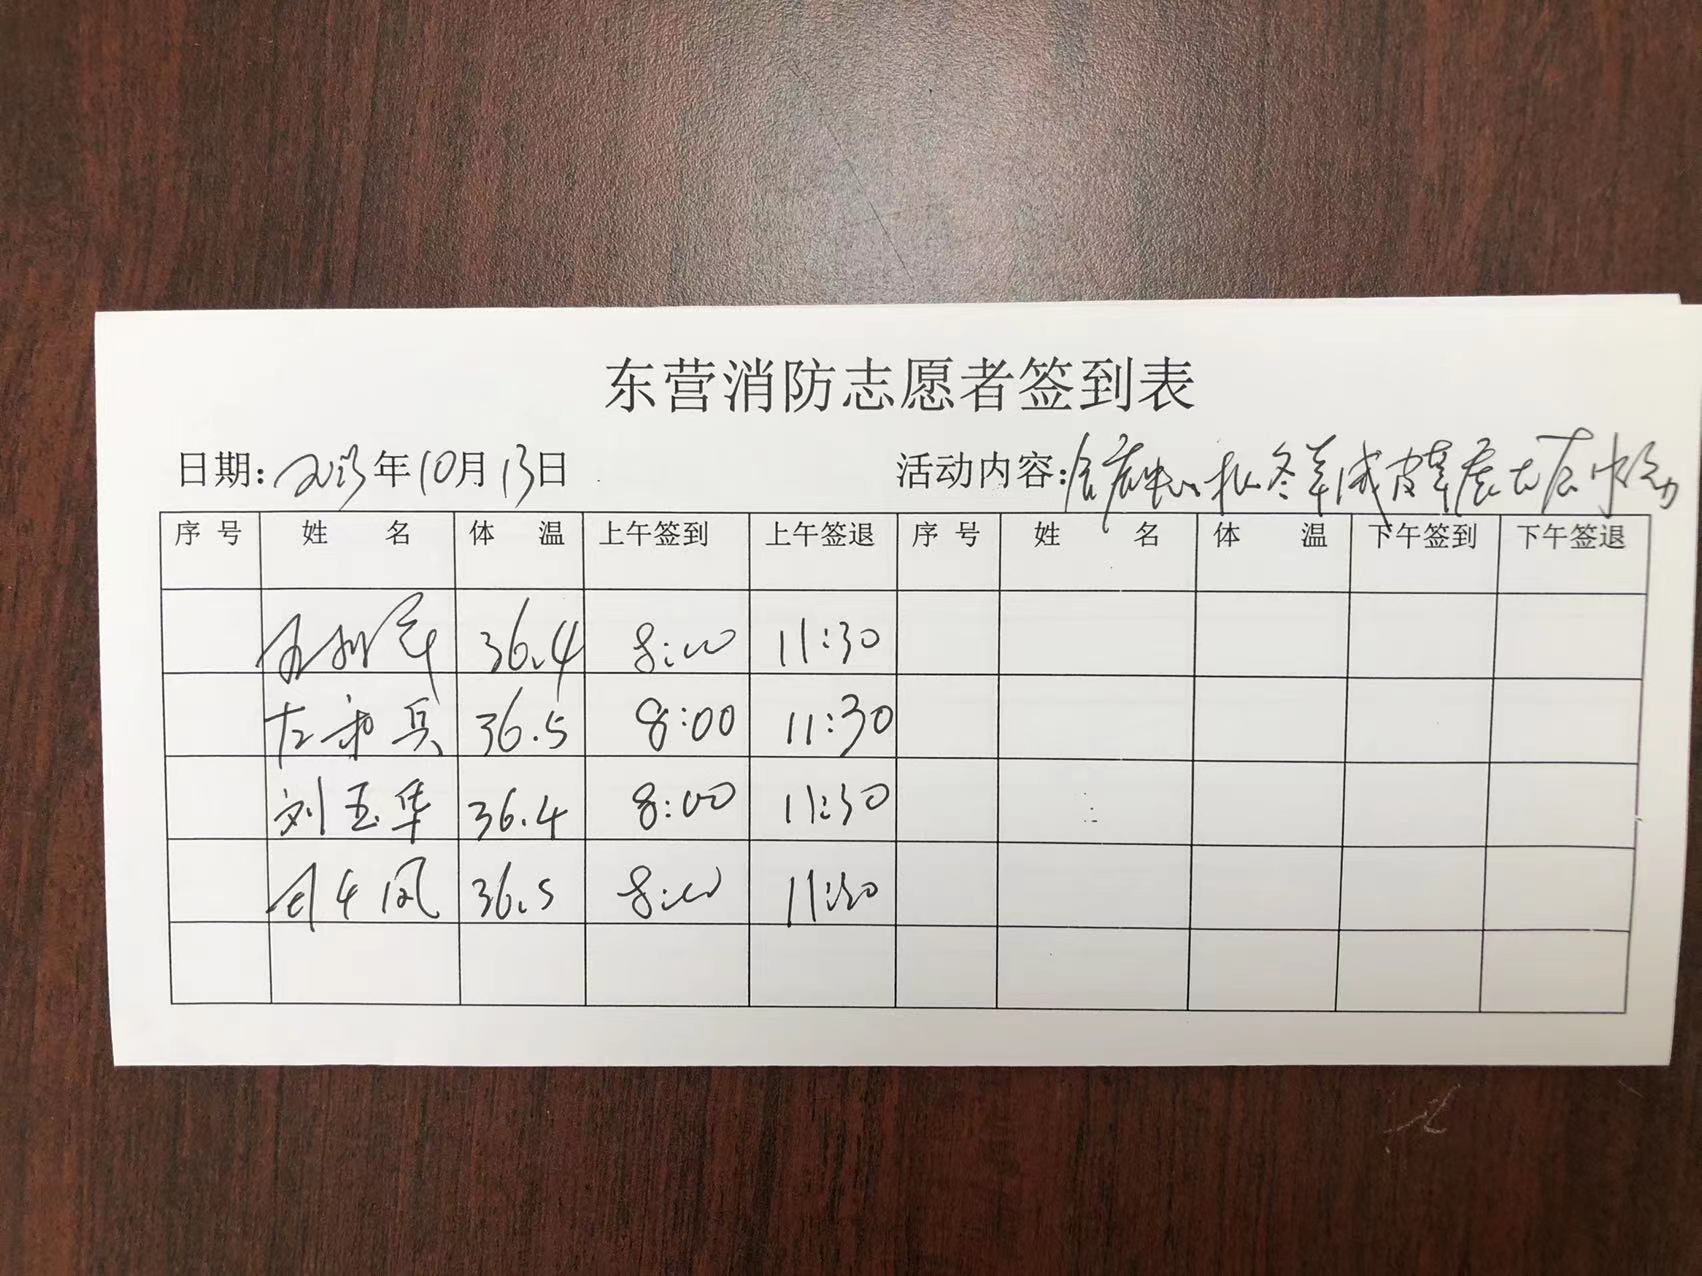 东营消防志愿者签到表
日期: 2023年10月13日 活动内容:
序号 姓名 体温 上午签到 上午签退 序号 姓名 体温 下午签到 下午签退
36.4 8:00 11:30
兵 36.5 8:00 11:30
刘玉华 36.4 8:00 11:30
凤 36.5 8:00 11:30